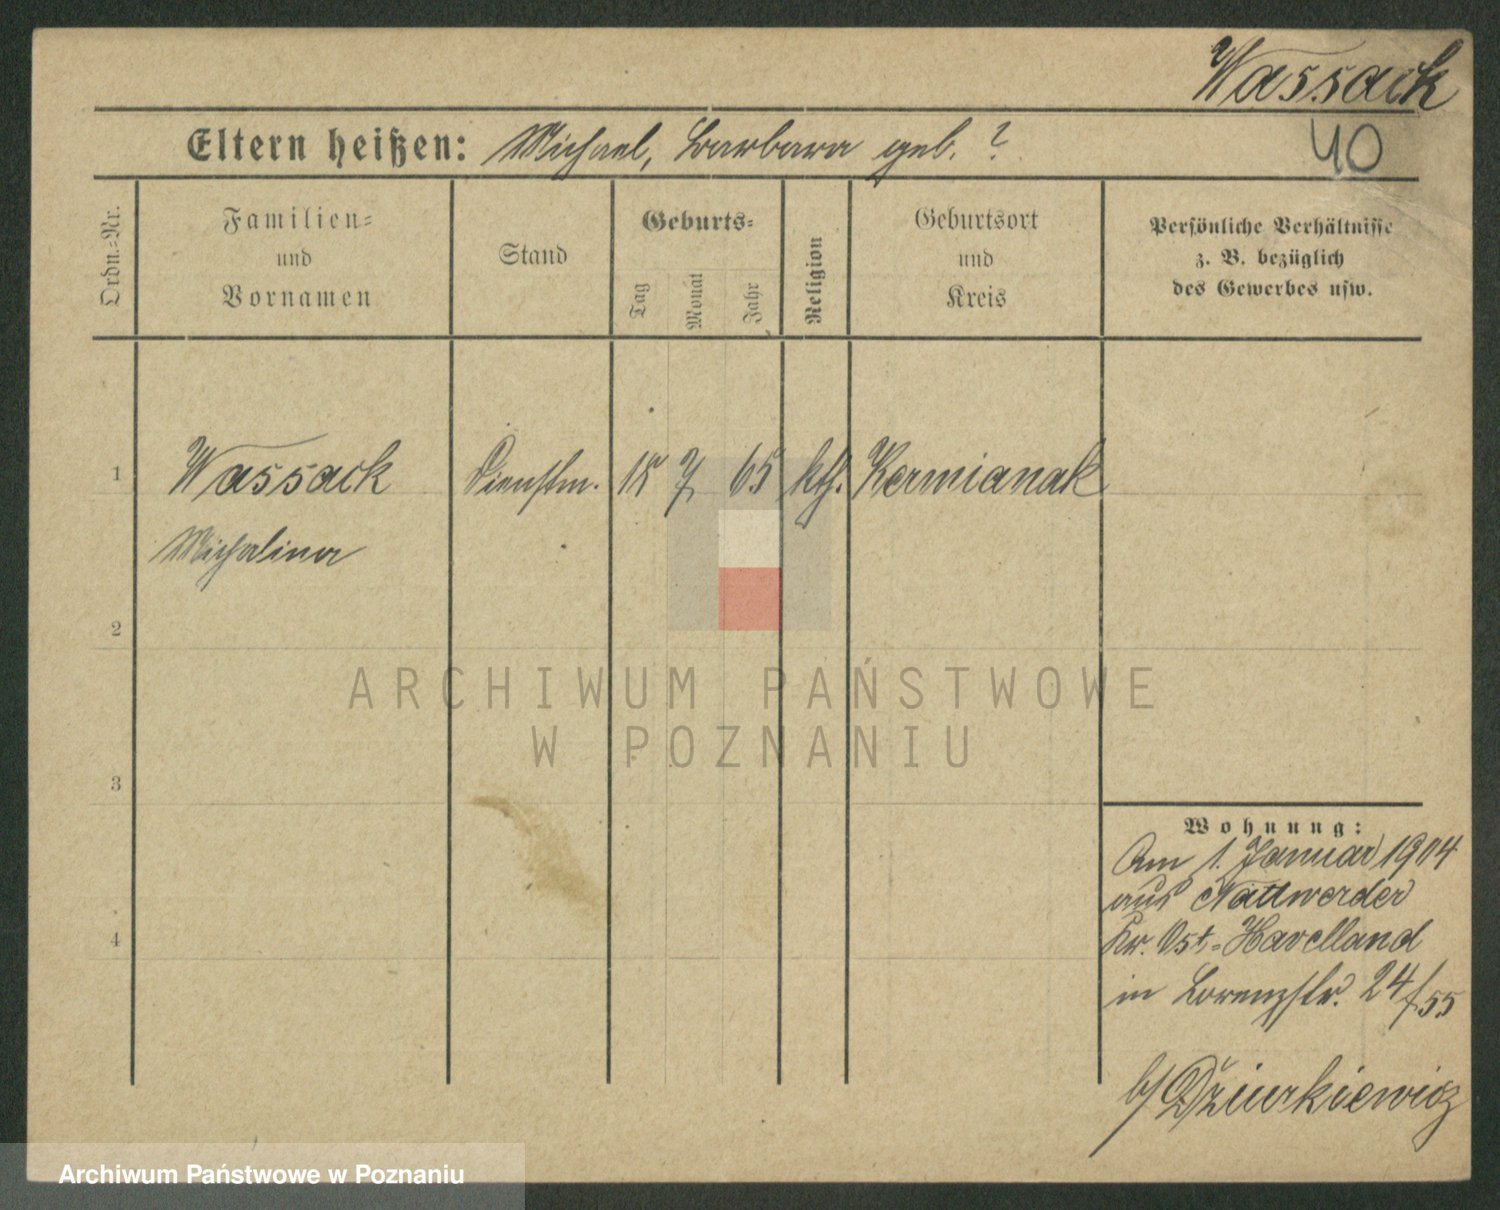 Wassack
Eltern heißen: Michael, Barbara geb. ?
40
Ordn.=Nr.
Familien=
und
Vornamen
Stand
Geburts=
Tag
Monat
Jahr
Religion
Geburtsort
und
Kreis
Persönliche Verhältnisse
z. B. bezüglich
des Gewerbes usw.
1 Wassack Dienstm. 7 65 kth. Kermianak
Michalina
2
3
4
ARCHIWUM PAŃSTWOWE
W POZNANIU
Wohnung:
Am 1. Januar 1904
aus Nattwerder
Kr. Ost=Havelland
in Lorenzstr. 24/55
b/ Dżiurkiewicz
Archiwum Państwowe w Poznaniu